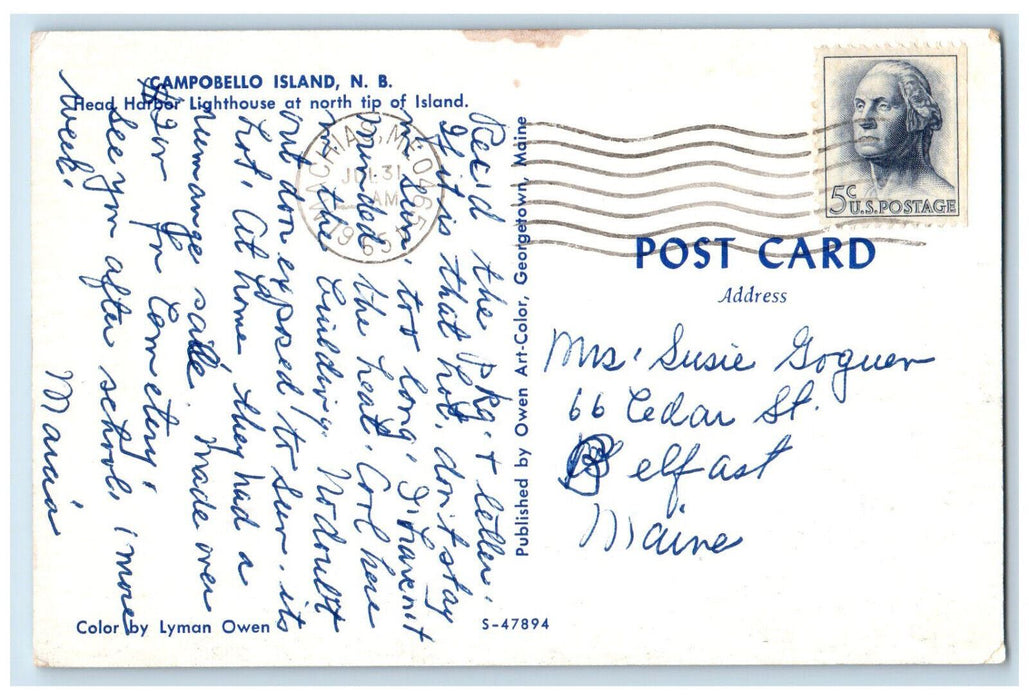 CAMPOBELLO ISLAND, N. B.
Head Harbor Lighthouse at north tip of Island.
Rec'd the pkg. + letter.
If it is that hot, don't stay
in sun, too long, I haven't
minded the heat. Cool here
in the building. No doubt
out door exposed to sun. its
hot. At home, they had a
rummange sale. Made over
for Cemetery.
See you after school, 1 more
week.
Marcia
Color by Lyman Owen
S-47894
Published by Owen Art-Color, Georgetown, Maine
MACHIAS, ME 04654
JUL 31
AM
1965
5c
U.S. POSTAGE
POST CARD
Address
Mrs. Susie Goguen
66 Cedar St.
Belfast
Maine